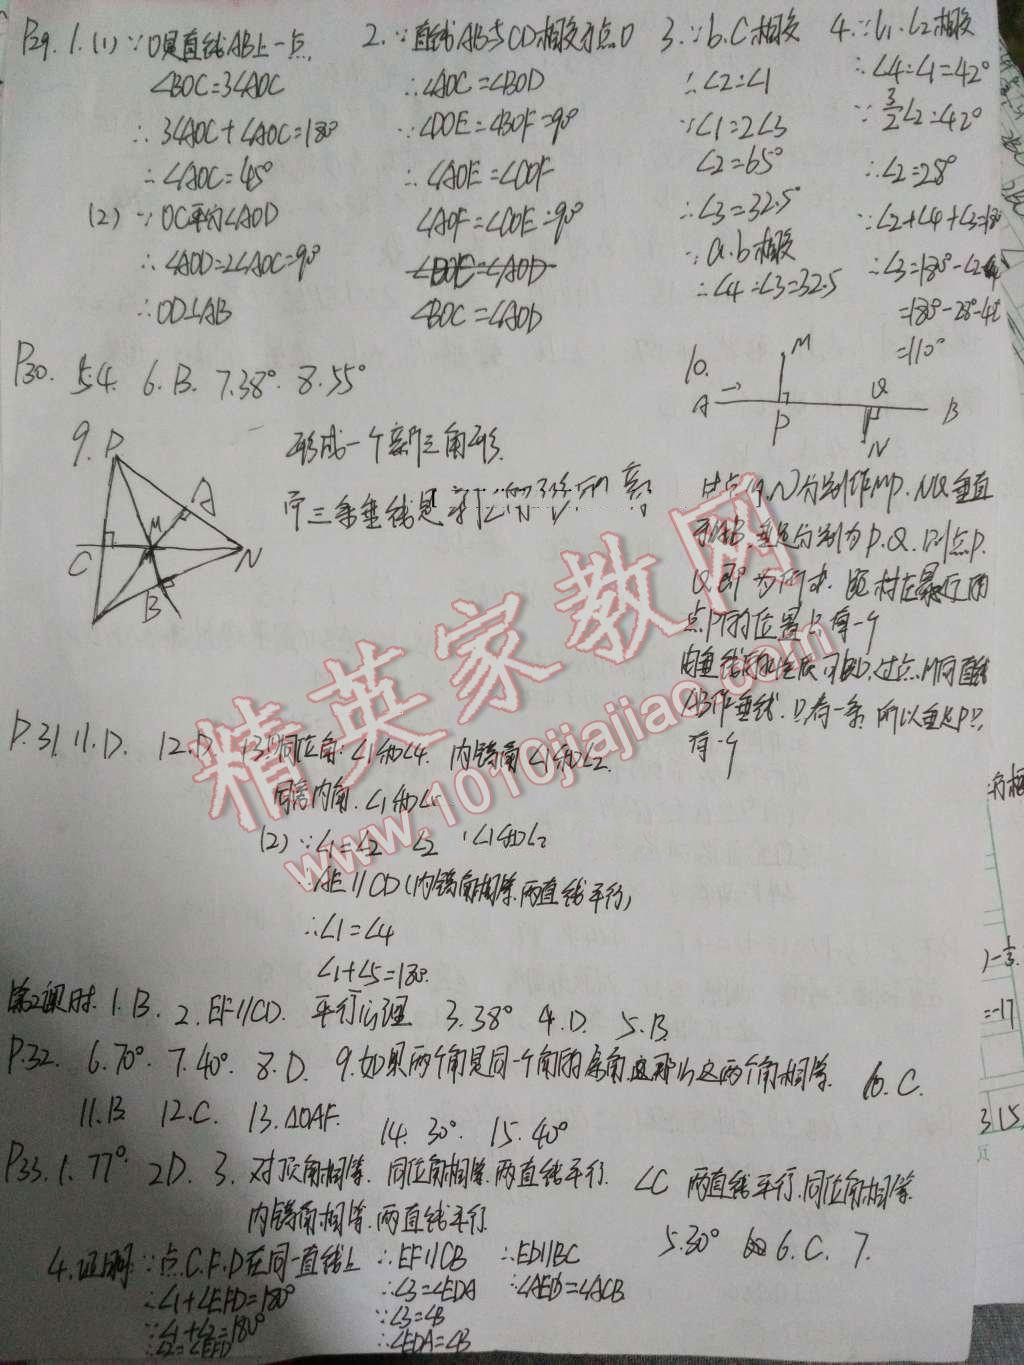 P29. 1.(1) ∵O是直线AB上一点.
∠BOC=3∠AOC
∴ 3∠AOC+∠AOC=180°
∴∠AOC=45°
(2) ∵ OC平分∠AOD
∴ ∠AOD=2∠AOC=90°
∴OD⊥AB
2. ∵直线AB与CD相交于点O
∴∠AOC=∠BOD
∵∠DOE=∠BOF=90°
∴ ∠AOE=∠COF
∠AOF=∠COE=90°
∠BOC=∠AOD
3. ∵b.c相交
∴∠2=∠1
∵∠1=2∠3
∠2=65°
∴∠3=32.5°
∵a.b相交
∴∠4=∠3=32.5
4. ∵l1.l2相交
∴∠4=∠1=42°
∵ 3/2∠2=42°
∴∠2=28°
∵∠2+∠4+∠3=180
∴∠3=180°-∠2-∠4
=180°-28°-42
=110°
P30. 5.4. 6.B. 7.38°. 8.55°
9. D
A
M
C
N
B
形成一个新三角形.
而三条垂线是
10.
M
A → Q B
P
N
过点M,N分别作MP.NQ垂直
于AB.垂足分别为P.Q.则点P.
Q即为所求.
点P的位置只有一个
AB作垂线.只有一条.所以垂足P只
有一个
P.31. 11.D. 12.D. 13.(1)同位角:∠1和∠4. 内错角∠1和∠2.
同旁内角.∠1和∠5
(2) ∵∠1=∠2 ∠2 ∠1和∠2
∴AE∥CD(内错角相等.两直线平行)
∴∠1=∠4
∠1+∠5=180°.
第2课时. 1.B. 2.EF∥CD. 平行公理 3.38° 4.D. 5.B.
P.32. 6.70°. 7.40°. 8.D. 9.如果两个角是同一个角的余角.那么这两个角相等. 10.C.
11.B 12.C. 13.△OAF. 14. 30°. 15. 40°
P33. 1. 77°. 2D. 3. 对顶角相等. 同位角相等.两直线平行. ∠C 两直线平行.同位角相等.
内错角相等.两直线平行.
5.30° 6.C. 7.
4.证明: ∵点C.F.D在同一直线上 ∴EF∥CB ∴ED∥BC
∴∠1+∠EFD=180° ∴∠3=∠EDA ∴∠AED=∠ACB
∵∠1+∠2=180° ∵∠3=∠B
∴∠2=∠EFD ∴∠EDA=∠B
精英家教网
www.1010jiajiao.com
=-17
315
页